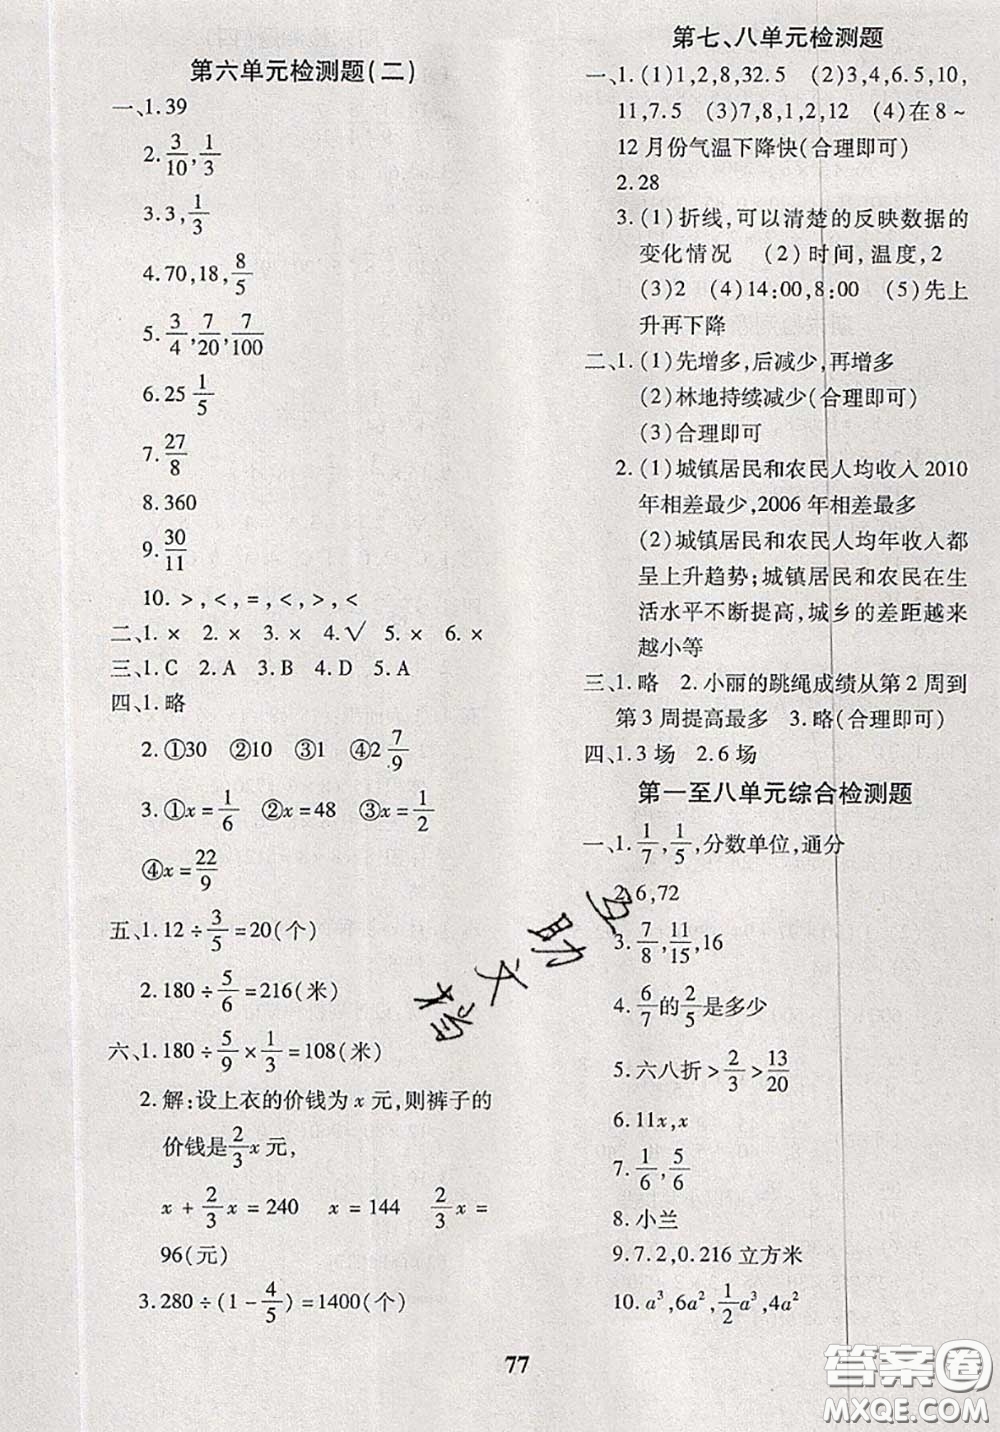 第六单元检测题(二)
一、1.39
2. 3/10, 1/3
3.3, 1/3
4.70,18, 8/5
5. 3/4, 7/20, 7/100
6.25 1/5
7. 27/8
8.360
9. 30/11
10. >,<,=,<,>,<
二、1. × 2. × 3. × 4.√ 5. × 6. ×
三、1.C 2.A 3.B 4.D 5.A
四、1.略
2.①30 ②10 ③1 ④2 7/9
3.①x=1/6 ②x=48 ③x=1/2
④x=22/9
五、1.12÷3/5=20(个)
2.180÷5/6=216(米)
六、1.180÷5/9×1/3=108(米)
2.解:设上衣的价钱为x元,则裤子的
价钱是2/3x元,
x+2/3x=240 x=144 2/3x=
96(元)
3.280÷(1-4/5)=1400(个)
第七、八单元检测题
一、1.(1)1,2,8,32.5 (2)3,4,6.5,10,
11,7.5 (3)7,8,1,2,12 (4)在8~
12月份气温下降快(合理即可)
2.28
3.(1)折线,可以清楚的反映数据的
变化情况 (2)时间,温度,2
(3)2 (4)14:00,8:00 (5)先上
升再下降
二、1.(1)先增多,后减少,再增多
(2)林地持续减少(合理即可)
(3)合理即可
2.(1)城镇居民和农民人均收入2010
年相差最少,2006年相差最多
(2)城镇居民和农民人均年收入都
呈上升趋势;城镇居民和农民在生
活水平不断提高,城乡的差距越来
越小等
三、1.略 2.小丽的跳绳成绩从第2周到
第3周提高最多 3.略(合理即可)
四、1.3场 2.6场
第一至八单元综合检测题
一、1. 1/7, 1/5,分数单位,通分
2.6,72
3. 7/8, 11/15,16
4. 6/7的2/5是多少
5.六八折>2/3>13/20
6.11x,x
7. 1/6, 5/6
8.小兰
9.7.2,0.216立方米
10.a³,6a²,1/2a³,4a²
77
答案圈
MXQE.COM